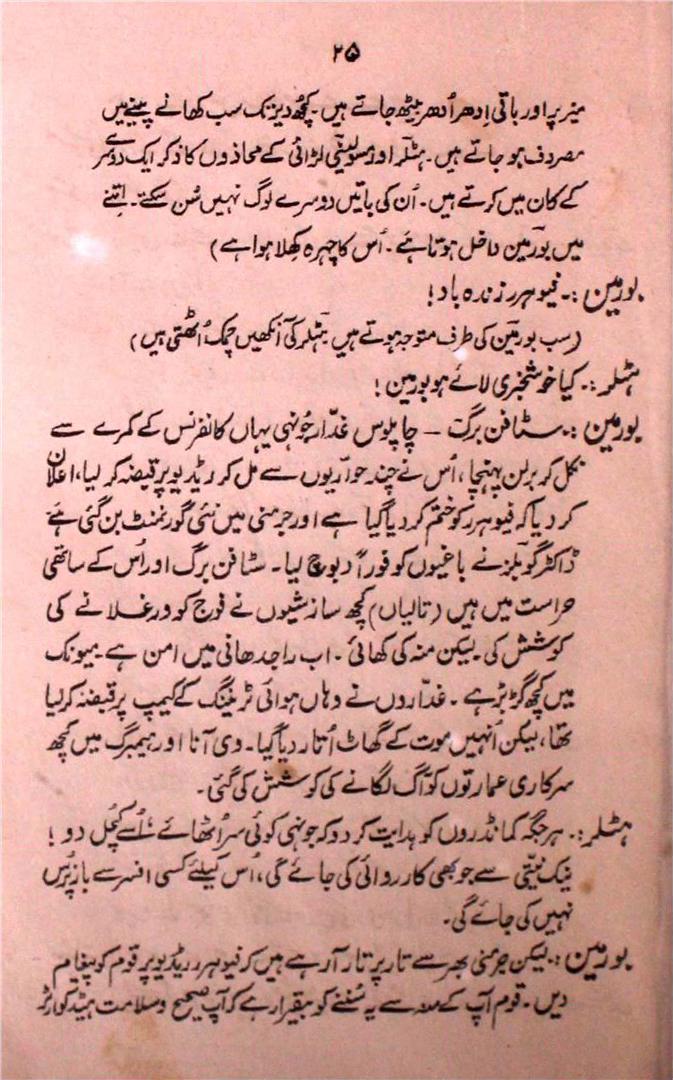 ۲۵
میز پر اور باقی اِدھر اُدھر بیٹھ جاتے ہیں۔ کچھ دیر تک سب کھانے پینے میں
مصروف ہو جاتے ہیں۔ ہٹلر اور مسولینی لڑائی کے محاذوں کا ذکر ایک دوسرے
کے کان میں کرتے ہیں۔ اُن کی باتیں دوسرے لوگ نہیں سُن سکتے۔ اتنے
میں بورمین داخل ہوتا ہے۔ اُس کا چہرہ کِھلا ہوا ہے)
بورمین :۔ فیوہرر زندہ باد!
(سب بورمین کی طرف متوجہ ہوتے ہیں ہٹلر کی آنکھیں چمک اُٹھتی ہیں)
ہٹلر :۔ کیا خوشخبری لائے ہو بورمین!
بورمین :۔ سٹافن برگ – چاپلوس غدّار جُونہی یہاں کانفرنس کے کمرے سے
نکل کر برلن پہنچا، اُس نے چند حواریوں سے مل کر ریڈیو پر قبضہ کر لیا، اعلان
کر دیا کہ فیوہرر کو ختم کر دیا گیا ہے اور جرمنی میں نئی گورنمنٹ بن گئی ہے
ڈاکٹر گوبلز نے باغیوں کو فوراً دبوچ لیا۔ سٹافن برگ اور اُس کے ساتھی
حراست میں ہیں (تالیاں) کچھ سازشیوں نے فوج کو ورغلانے کی
کوشش کی۔ لیکن منہ کی کھائی۔ اب راجدھانی میں امن ہے۔ میونک
میں کچھ گڑبڑ ہے۔ غدّاروں نے وہاں ہوائی ٹریننگ کے کیمپ پر قبضہ کر لیا
تھا، لیکن اُنہیں موت کے گھاٹ اُتار دیا گیا۔ وی آنا اور ہیمبرگ میں کچھ
سرکاری عمارتوں کو آگ لگانے کی کوشش کی گئی۔
ہٹلر :۔ ہر جگہ کمانڈروں کو ہدایت کر دو کہ جونہی کوئی سر اُٹھائے، اُسے کچُل دو!
نیک نیتی سے جو بھی کارروائی کی جائے گی، اُس کیلئے کسی افسر سے بازپُرس
نہیں کی جائے گی۔
بورمین :۔ لیکن جرمنی بھر سے تار پر تار آ رہے ہیں کہ فیوہرر ریڈیو پر قوم کو پیغام
دیں۔ قوم آپ کے منہ سے یہ سُننے کو بیقرار ہے کہ آپ صحیح و سلامت ہیڈ کوارٹر